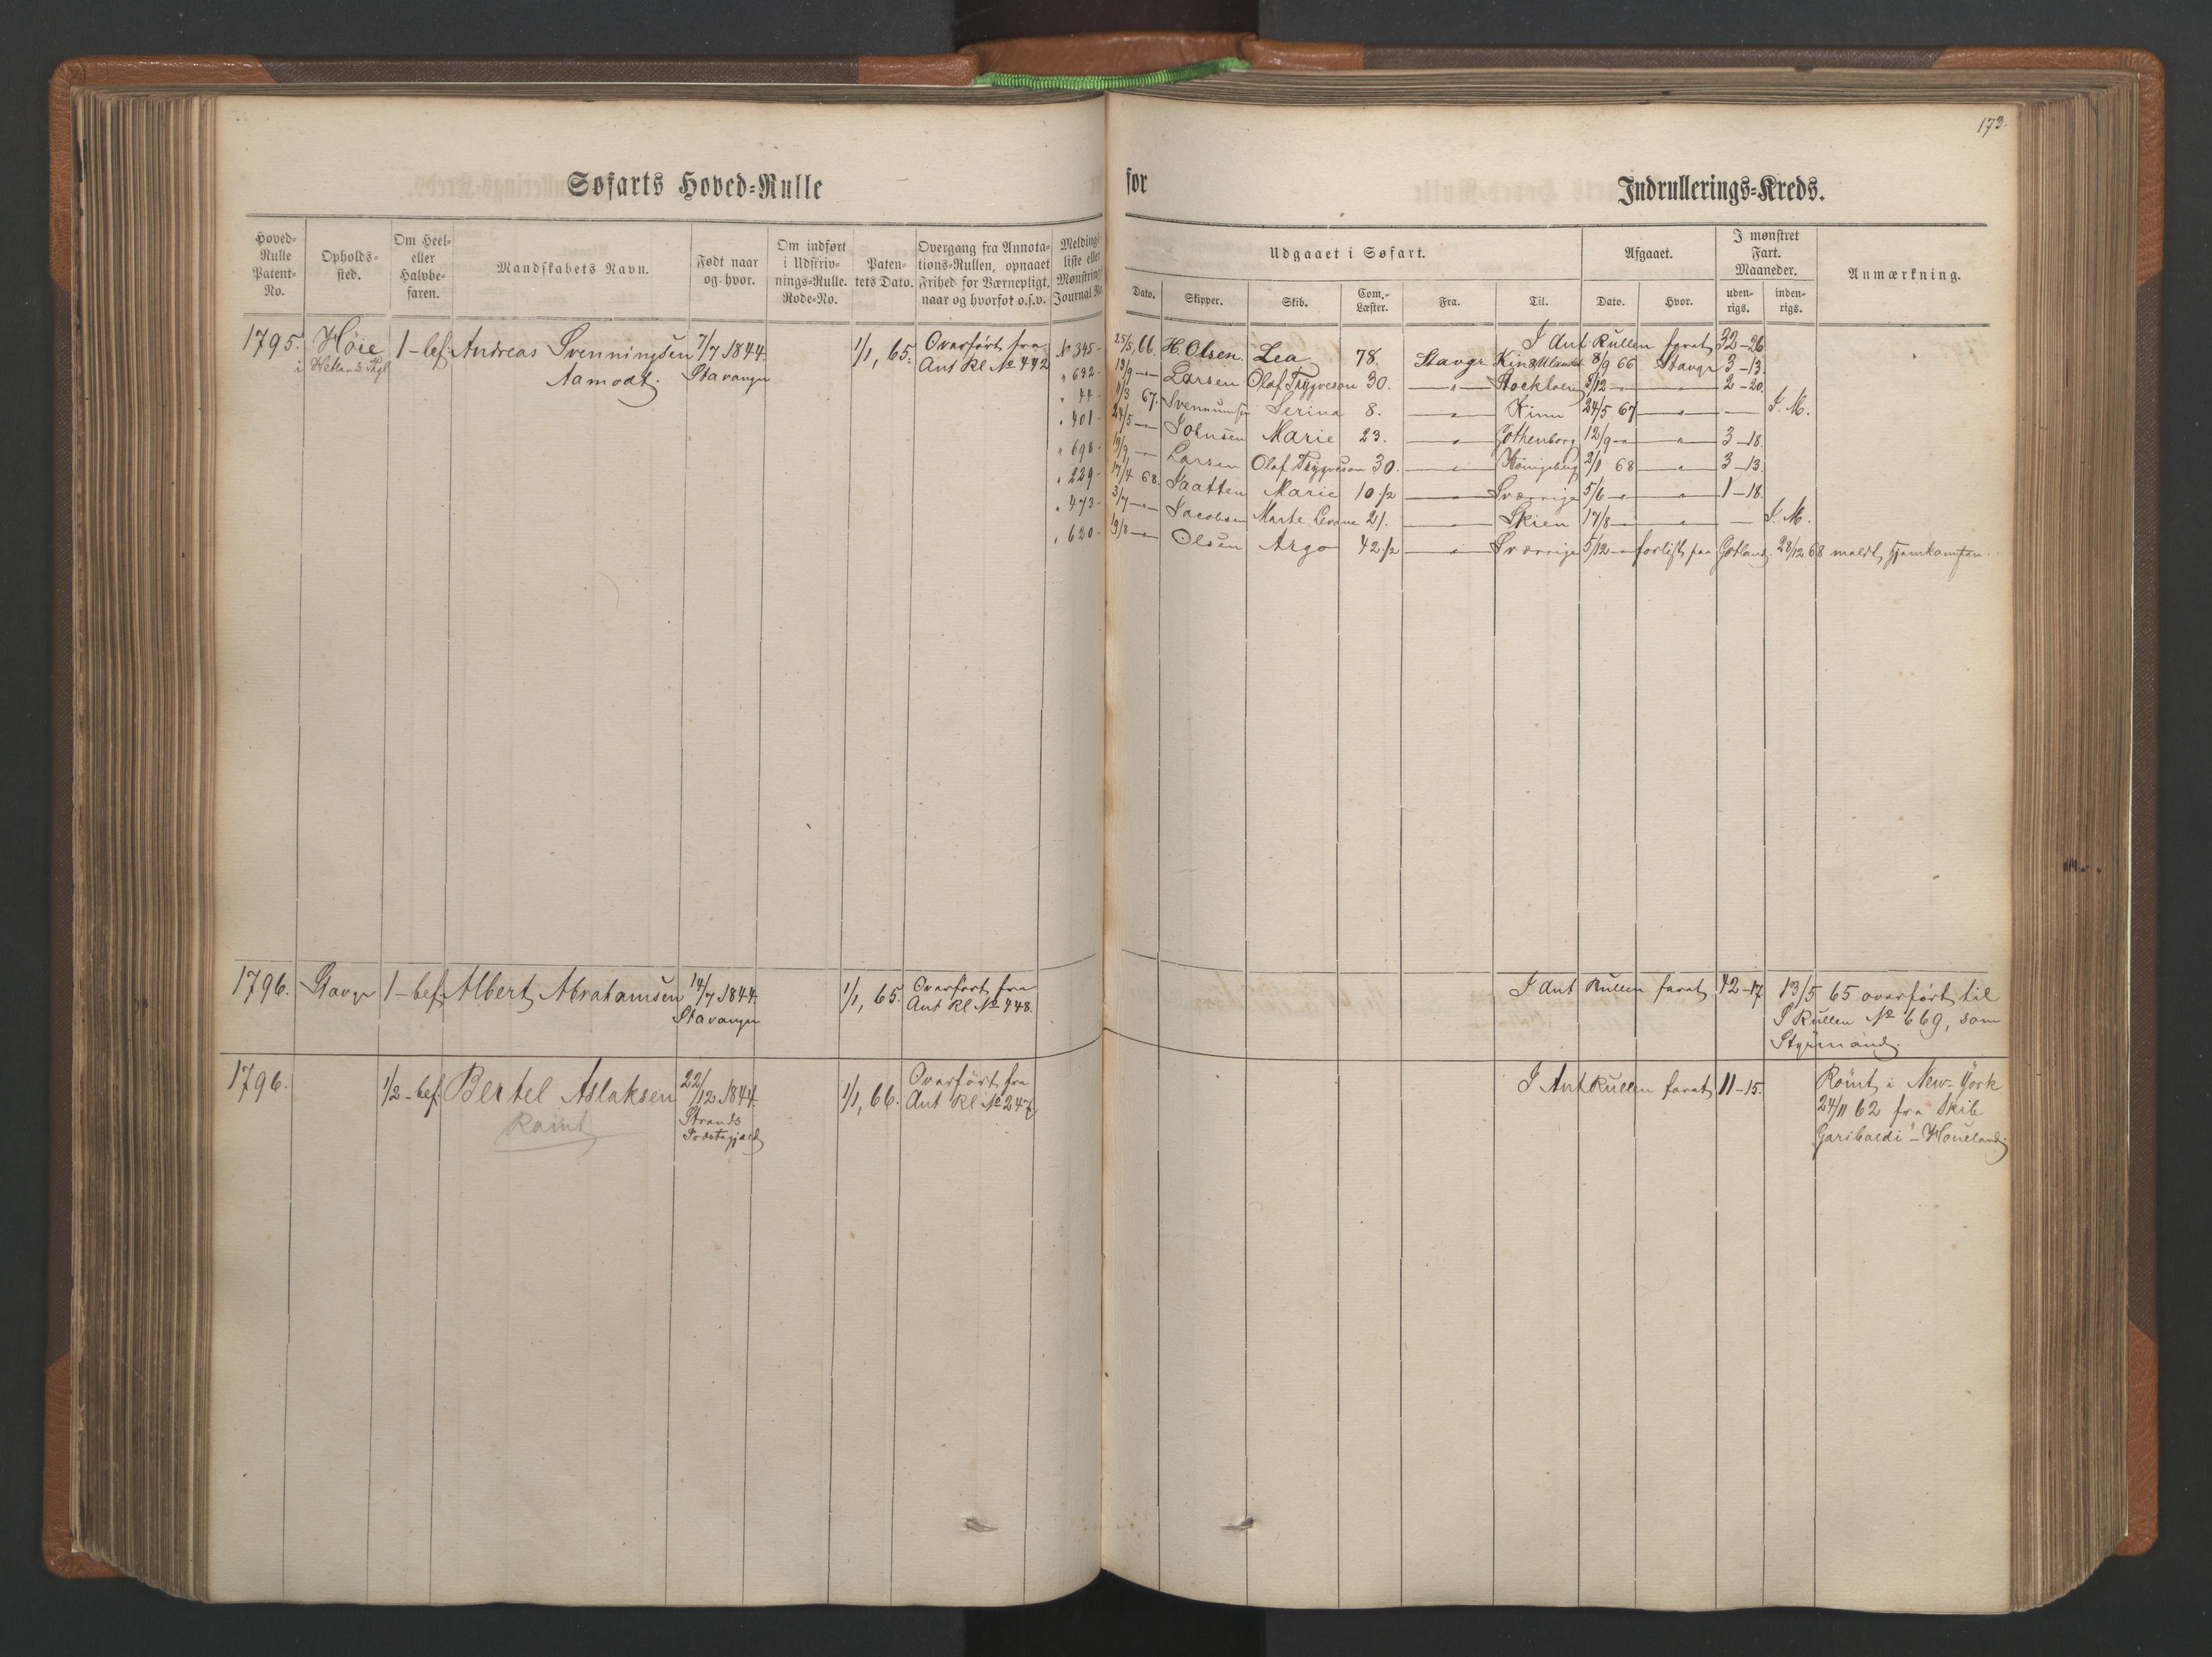 173.
Søfarts Hoved-Rulle for Indrullerings-Kreds.
Hoved-Rulle Patent-No.
Opholds-sted.
Om Heel- eller Halvbe-faren.
Mandskabets Navn.
Født naar og hvor.
Om indført i Udskriv-nings-Rulle. Rode-No.
Paten-tets Dato.
Overgang fra Annota-tions-Rullen, opnaaet Frihed for Værnepligt, naar og hvorfor o.s.v.
Meldings-liste eller Mønstrings Journal No.
Udgaaet i Søfart.
Dato. Skipper. Skib. Com.-Læster. Fra. Til.
Afgaaet.
Dato. Hvor.
I mønstret Fart. Maaneder.
uden-rigs. inden-rigs.
Anmærkning.
1795. Höie 1-bef. Andreas Svenningsen 7/7 1844. 1/1, 65. Overført fra
i Hetlands Pgl Aamodt. Stavanger Ant Rl No 442
I Ant Rullen faret 32-26
No 345- 25/5, 66. H. Olsen. Lea 78. Stavgr Kin 8/9 66 Stavgr 3-13.
" 692- 13/9 -"- Larsen Olaf Trygveson 30. -"- Stockholm 3/12 -"- -"- 2-20.
" 44- 11/3 67. Svennumsen Serina 8. -"- Kinn 24/5 67 -"- - I. M.
" 401- 24/5 -"- Johnsen Marie 23. -"- Gothenborg 12/9 -"- -"- 3-18.
" 698- 19/9 -"- Larsen Olaf Trygveson 30. -"- Königsberg 2/1 68 -"- 3-13.
" 229- 17/4 68. Taatten Marie 10 1/2 -"- Sverrige 5/6 -"- -"- 1-18.
" 473- 3/7 -"- Jacobsen Marte Levane 21. -"- Skien 17/8 -"- -"- - I. M.
" 620- 19/8 -"- Olsen Argo 42 1/2 -"- Sverrige 5/12 -"- forlist paa Gotland. 28/12 68 meldt hjemkomsten.
1796. Stavgr 1-bef. Albert Abrahamsen 14/7 1844. 1/1, 65. Overført fra
Stavanger Ant Rl No 448.
I Ant Rullen faret 42-17 13/5 65 overført til
S Rullen No 669, som
Styrmand.
1796. 1/2-bef. Bertel Aslaksen 22/12 1844. 1/1, 66. Overført fra
Strands Ant Rl No 247,
Præstegjæld
Römt
I Ant Rullen faret 11-15. Römt i New-York
24/11 62 fra Skib
Garibaldi"- Houeland.